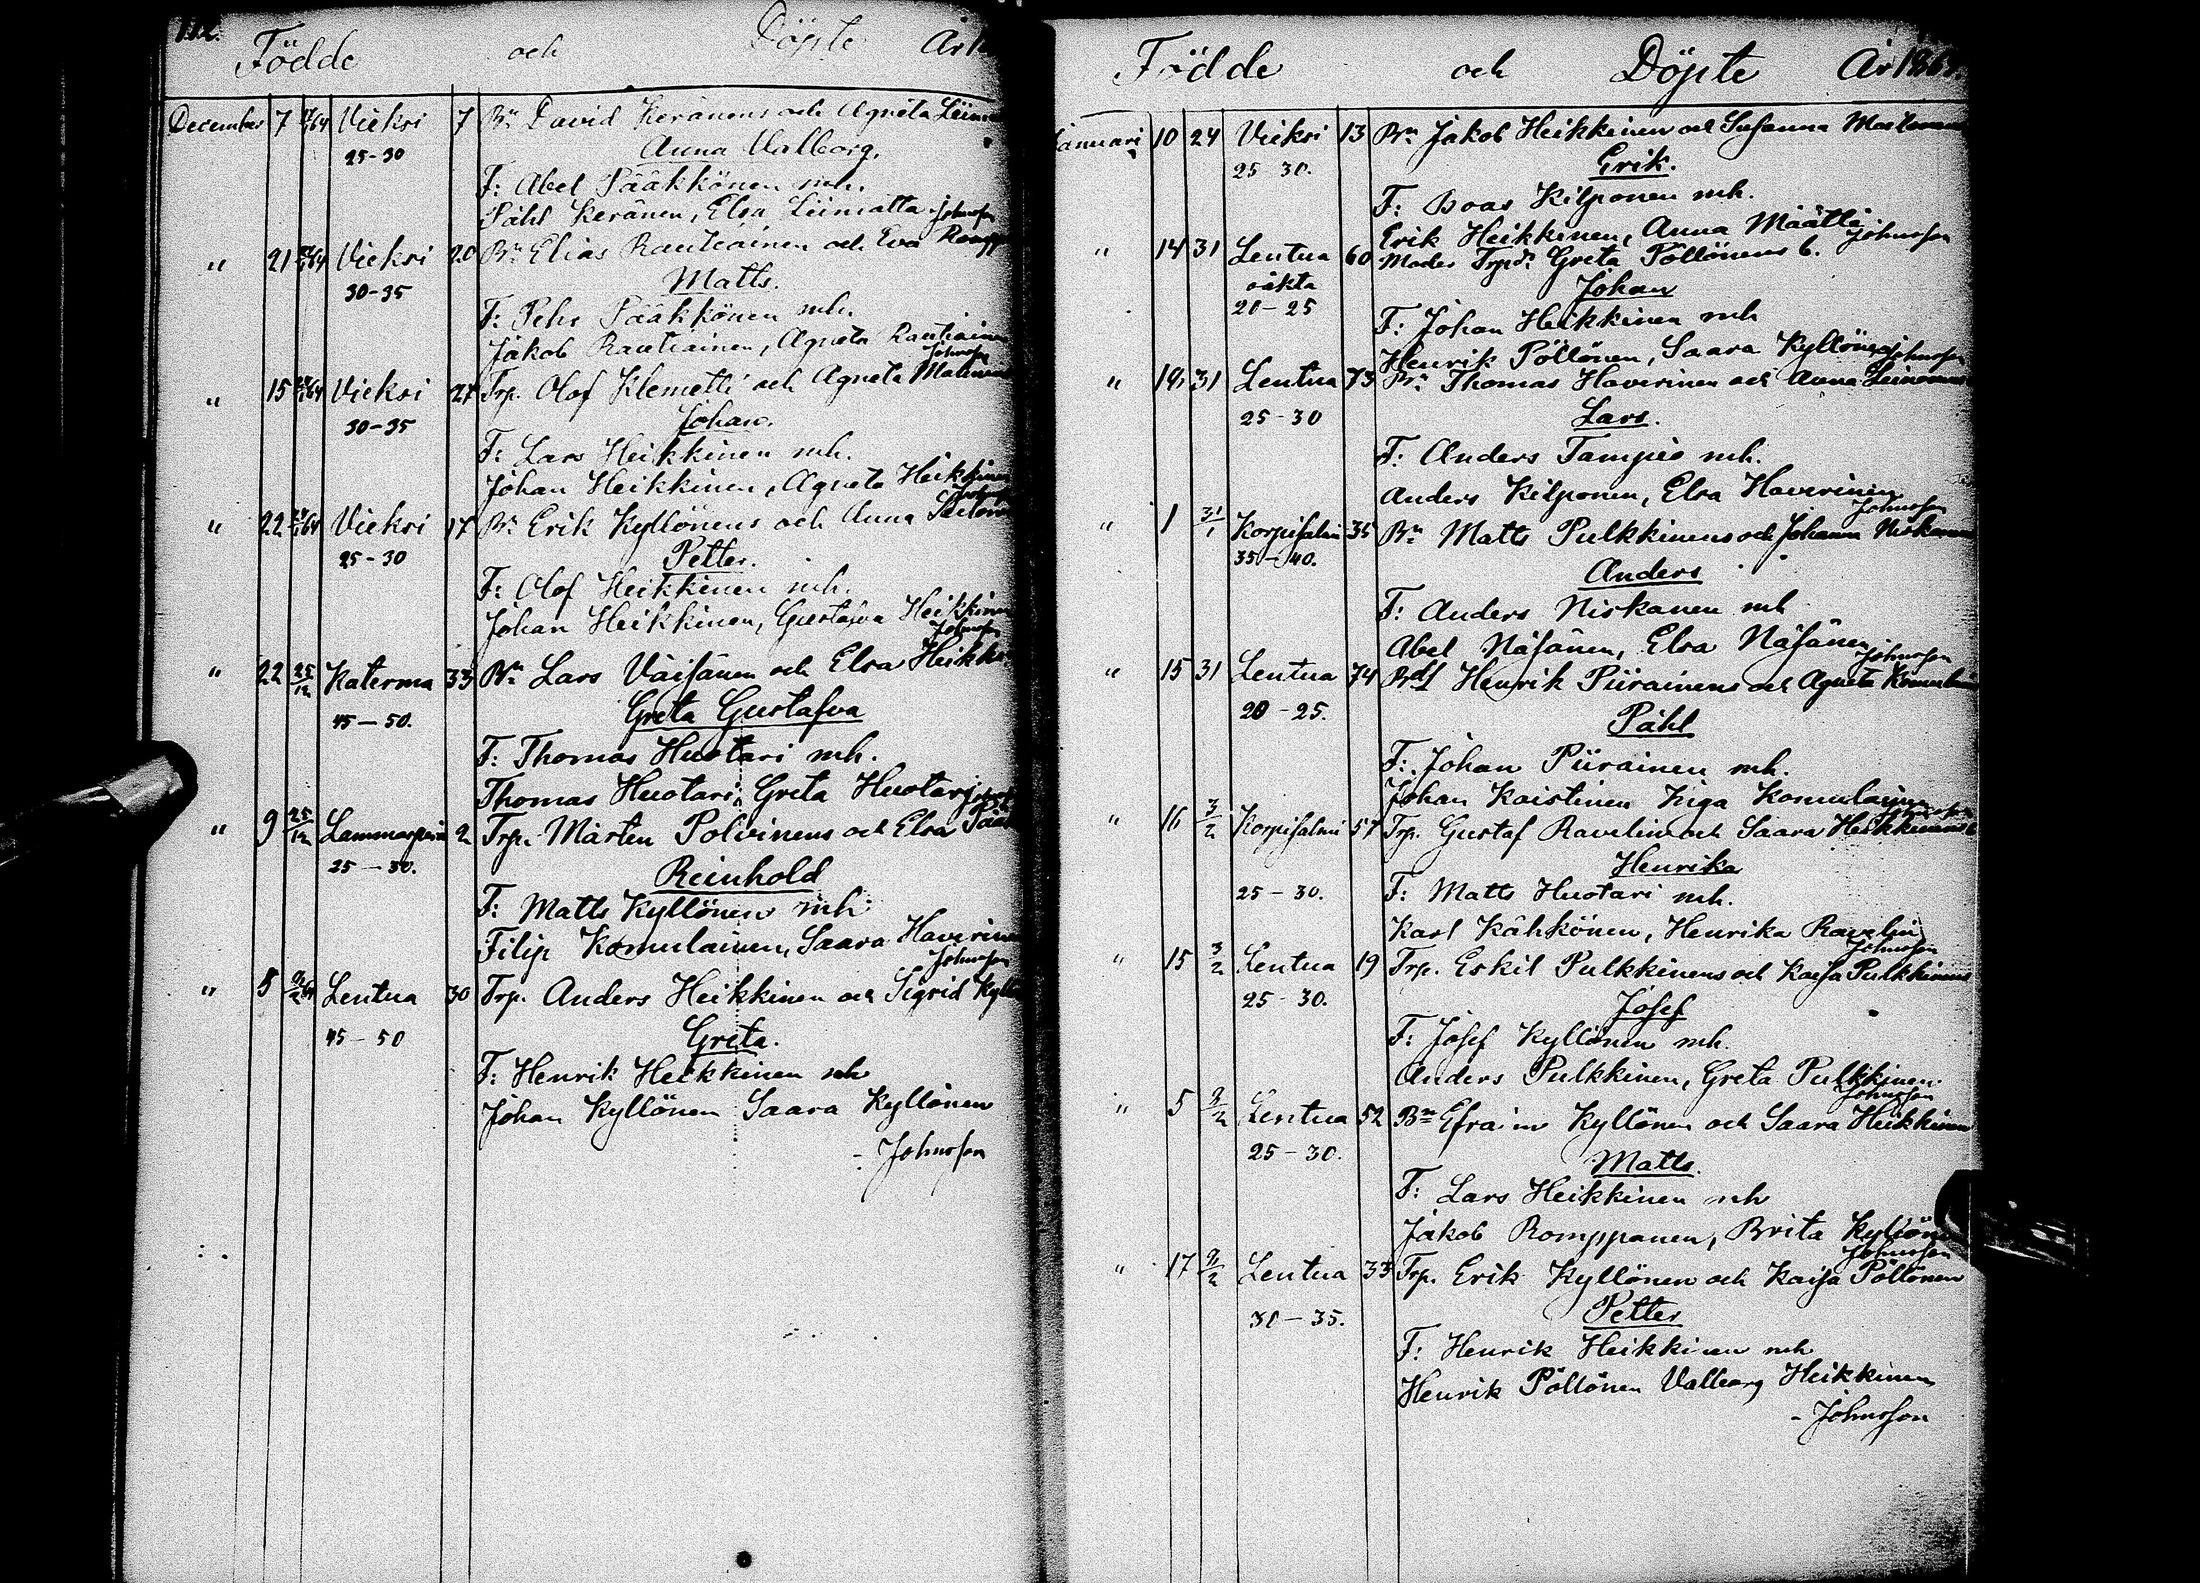 Födde och Döpte År
December 7 Vieksi 7 Bn David Keränens och Agneta
25-30 Anna Valborg.
F: Abel Pääkkönen mh.
Påhl Keränen, Elsa Liimatta Johnsson
" 21 Vieksi 20 Bn Elias Rautiainen och Eva
30-35 Matts.
F: Pehr Pääkkönen mh.
Jakob Rautiainen, Agneta Rautiainen
Johnsson
" 15 Vieksi 27 Trp. Olof Klemetti och Agneta
30-35 Johan.
F: Lars Heikkinen mh.
Johan Heikkinen, Agneta Heikkinen
" 22 Vieksi 17 Bn Erik Kyllönens och Anna
25-30 Petter.
F: Olof Heikkinen mh.
Johan Heikkinen, Gustafva Heikkinen
Johnsson
" 22 25/12 Katerma 33 Bn Lars Väisänen och Elsa
45-50. Greta Gustafva
F: Thomas Huotari mh.
Thomas Huotari, Greta Huotari
" 9 25/12 Lammasperä 2 Trp. Mårten Polvinens och Elsa
25-30. Reinhold
F: Matts Kyllönen mh
Filip Komulainen, Saara Haverinen
Johnsson
" 5 Lentua 30 Trp. Anders Heikkinen och Sigrid
45-50 Greta.
F: Henrik Heikkinen mh
Johan Kyllönen Saara Kyllönen
- Johnsson
Födde och Döpte År
Januari 10 24 Vieksi 13 Bn Jakob Heikkinen och Susanna
25-30. Erik.
F: Boas Kilponen mh.
Erik Heikkinen, Anna Määttä Johnsson
" 14 31 Lentua 60 Moder Trpdr Greta Pöllönens b.
oäkta Johan
20-25 F: Johan Heikkinen mh
Henrik Pöllönen, Saara Kyllönen Johnsson
" 19 31 Lentua 73 Bn Thomas Haverinen och Anna Leinonens
25-30 Lars.
F: Anders Tampio mh.
Anders Kilponen, Elsa Haverinen
Johnsson
" 1 31/1 Korpisalmi 35 Bn Matts Pulkkinens och Johanna Niskanens
35-40. Anders
F: Anders Niskanen mh
Abel Näsänen, Elsa Näsänen Johnsson
" 15 31 Lentua 74 Henrik Piirainens och Agneta
20-25. Påhl
F: Johan Piirainen mh.
Johan Kaistinen Kiga Komulainen
" 16 3/2 Korpisalmi 57 Trp. Gustaf Ravelin och Saara Heikkinens b
Henrika
25-30. F: Matts Huotari mh.
Karl Kähkönen, Henrika Ravelin
Johnsson
" 15 3/2 Lentua 19 Trp. Eskil Pulkkinens och Kaisa Pulkkinens
25-30. Josef
F: Josef Kyllönen mh.
Anders Pulkkinen, Greta Pulkkinen
Johnsson
" 5 9/2 Lentua 52 Bn Efraim Kyllönen och Saara Heikkinen
25-30. Matts.
F: Lars Heikkinen mh
Jakob Romppanen, Brita Kyllönen
Johnsson
" 17 9/2 Lentua 33 Trp. Erik Kyllönen och Kaisa Pöllönen
30-35. Petter
F: Henrik Heikkinen mh
Henrik Pöllönen Valborg Heikkinen
- Johnsson